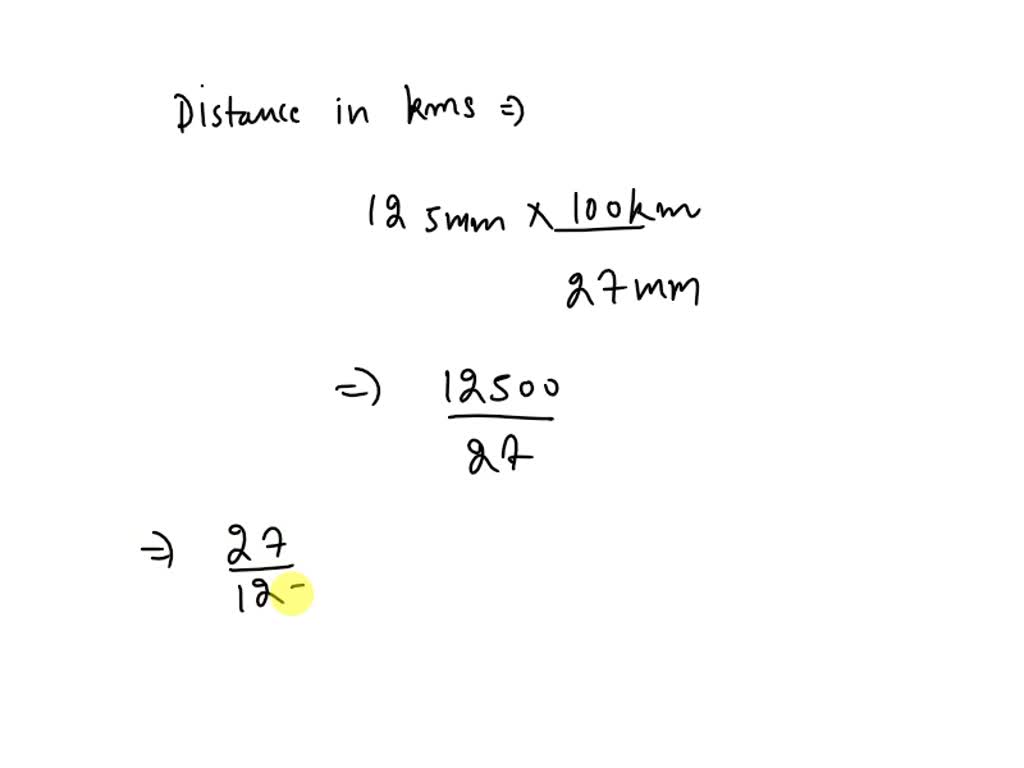 Distance in kms ⇒
125mm × 100km
27mm
⇒ 12500
27
⇒ 27
12